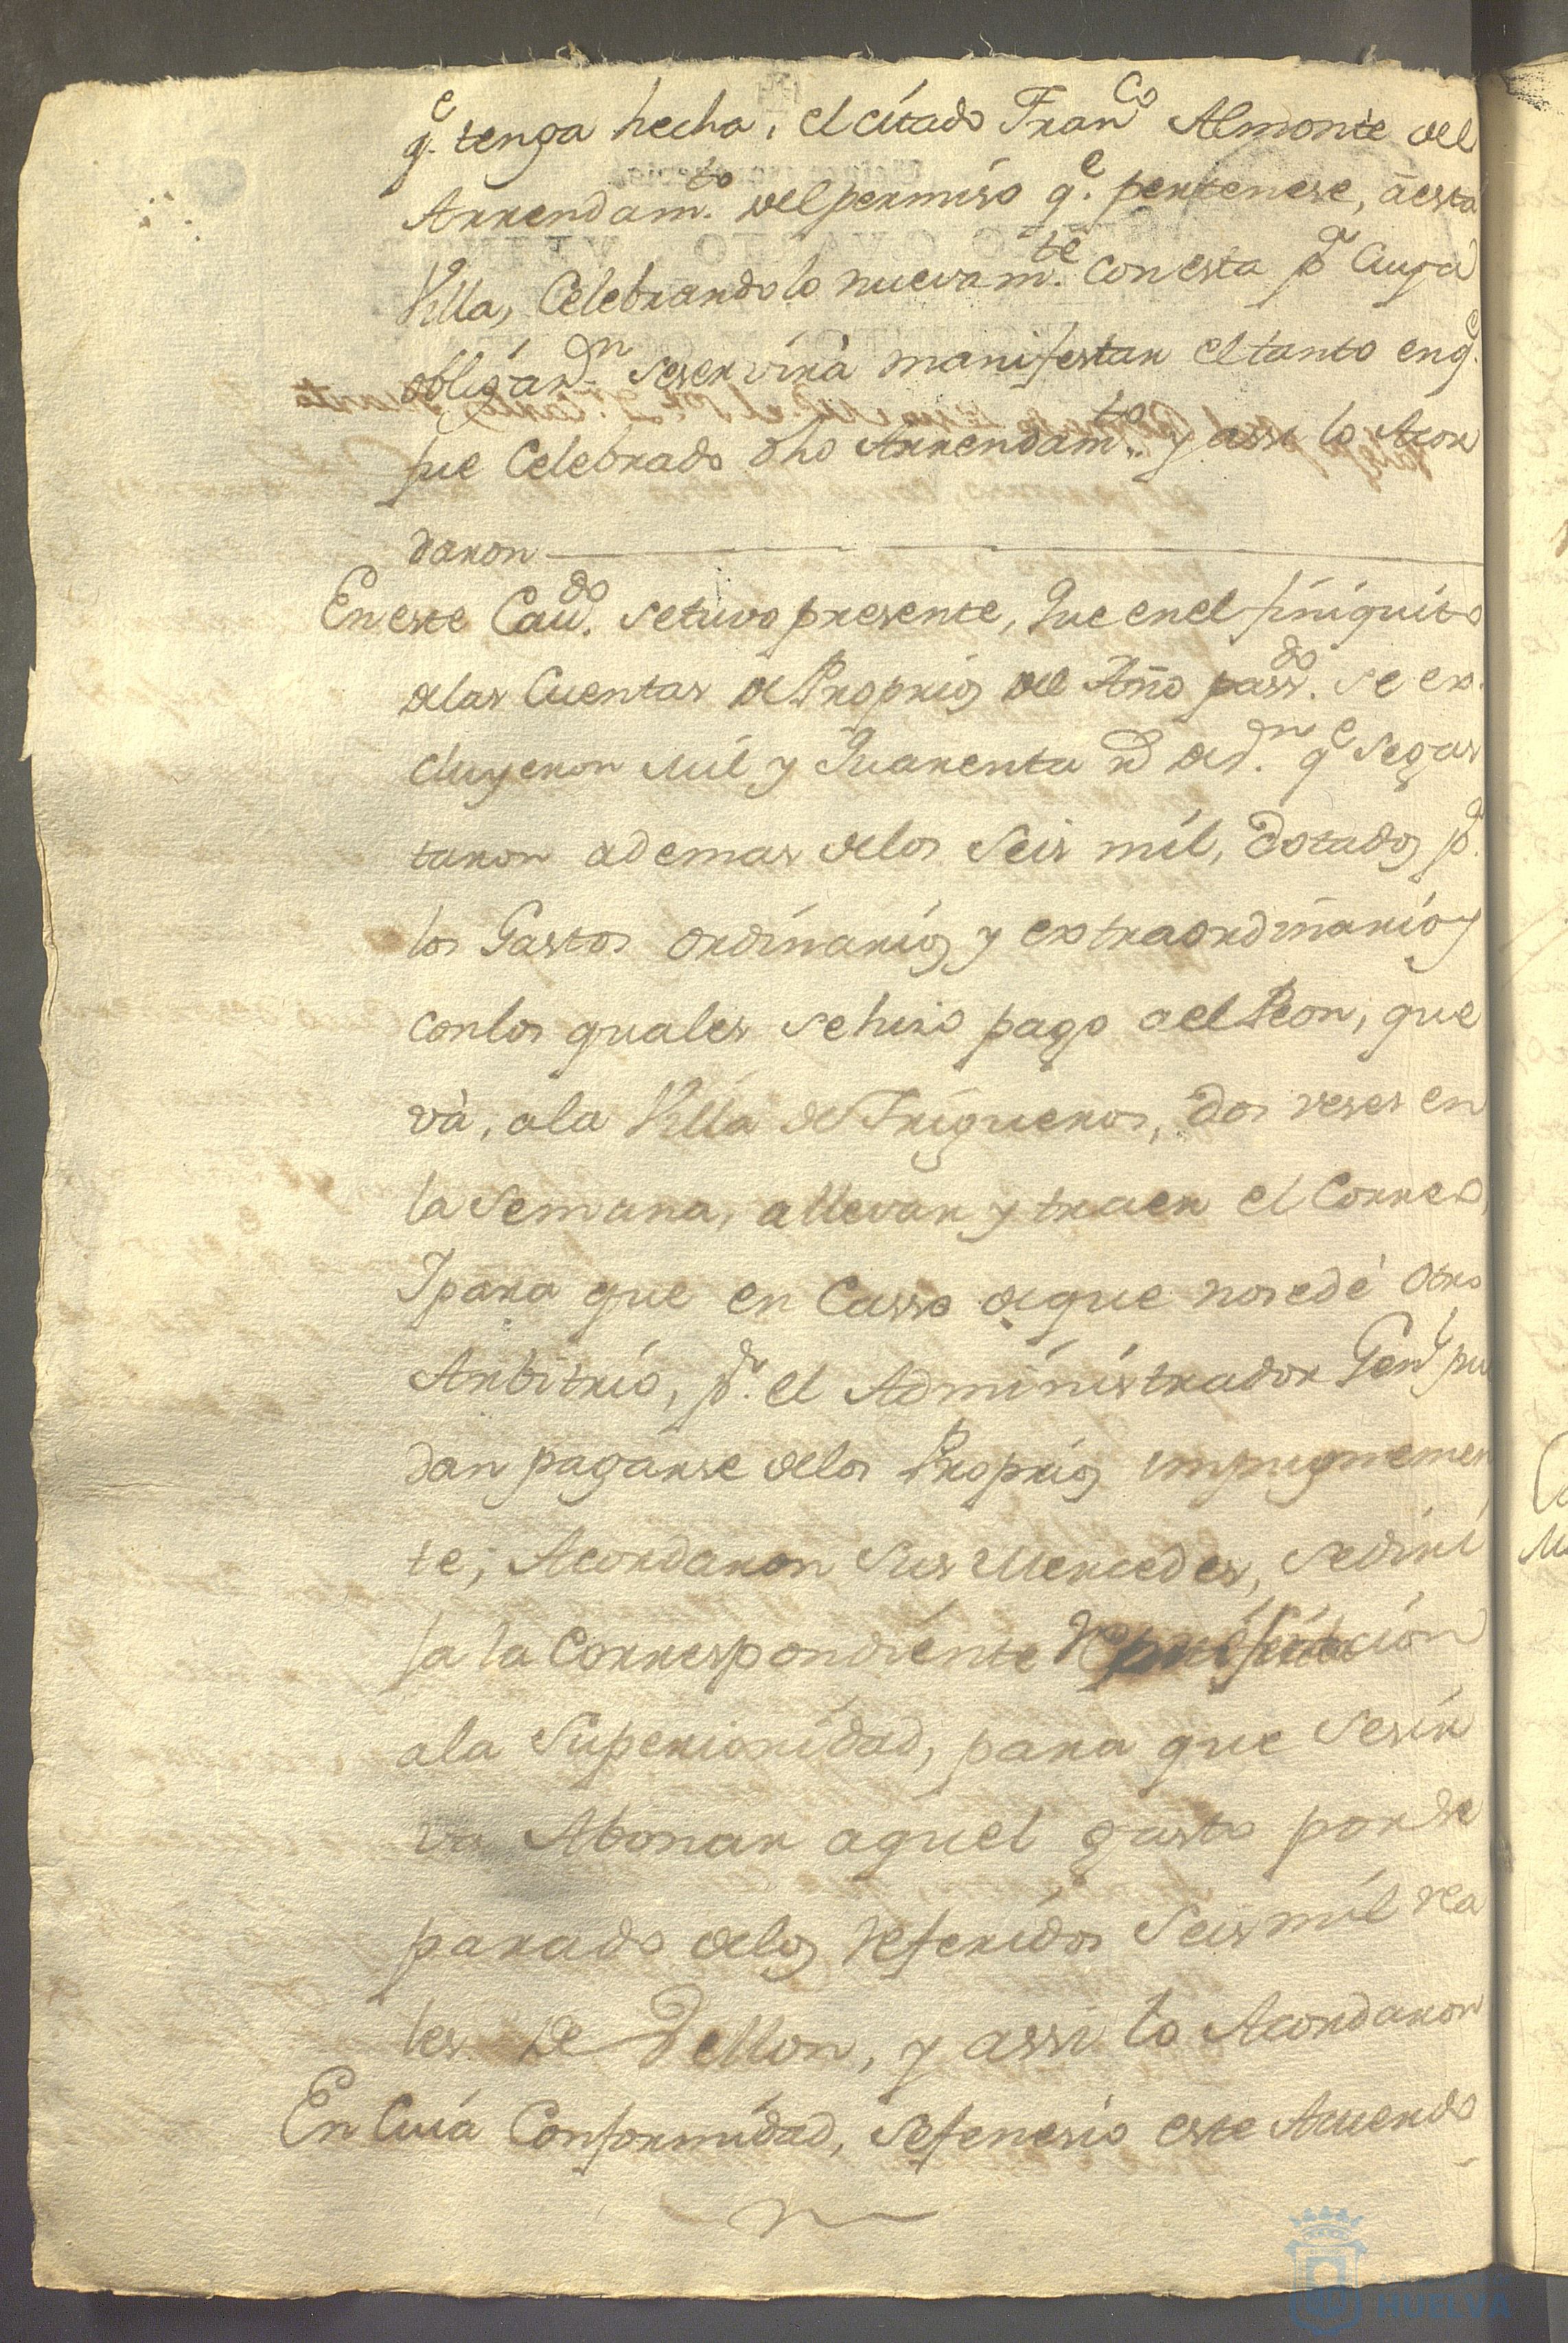 q.e tenga hecha, el citado Fran.co Almonte del
Arrendam.to del permiso q.e pertenese, a esta
Villa, Celebrandolo nuevam.te con esta p.a Cuya
obligaz.n se servirà manifestar el tanto en q.e
fue Celebrado dho Arrendam.to y assi lo Acor
daron
En este Cau.do se tuvo presente, Que en el finiquito
delas Cuentas de Proprios del Año pass.do se ex
cluyeron Mil y Quarenta r.s de v.n q.e se gas
taron ademas delos Seis mil, dotados p.a
los Gastos ordinarios y extraordinarios
con los quales se hiso pago a el Peon, que
và, a la Villa de Trigueros, dos veses en
la Semana, a llevar y traer el Correo,
Y para que en Casso de que no se dé otro
Arbitrio, p.r el Administrador Gen.l pue
dan pagarse delos Proprios impugnemen
te, Acordaron Sus Mercedes, se diri
ja la Correspondiente Representacion
a la Superioridad, para que se sir
va Abonar aquel gasto por se
parado delos referidos Seis mil rea
les de Vellon, y assi lo Acordaron
En Cuia Conformidad, se fenesio este Acuerdo
HUELVA